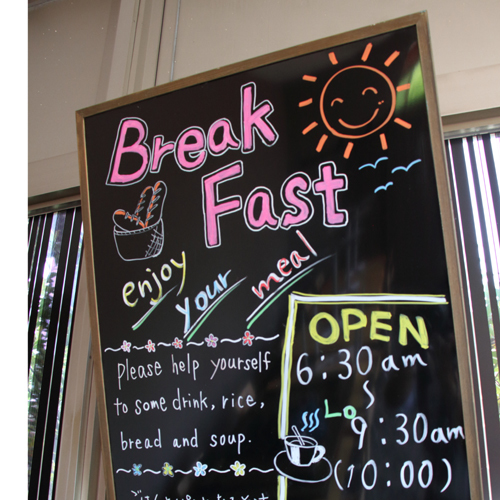 Break
Fast
enjoy
your
meal
Please help yourself
to some drink, rice,
bread and soup.
OPEN
6:30am
Lo
9:30am
(10:00)